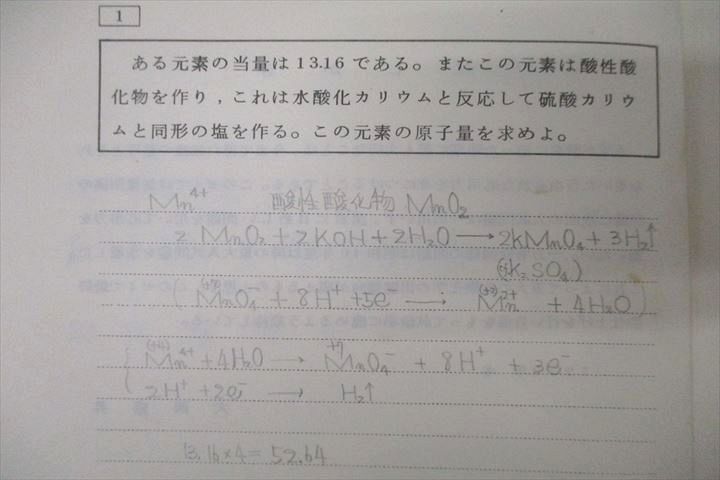 1
ある元素の当量は13.16である。またこの元素は酸性酸
化物を作り，これは水酸化カリウムと反応して硫酸カリウ
ムと同形の塩を作る。この元素の原子量を求めよ。
Mn⁴⁺ 酸性酸化物 MnO₂
2 MnO₂ + 2KOH + 2H₂O → 2KMnO₄ + 3H₂↑
K₂SO₄)
(+7)
( MnO₄⁻ + 8H⁺ + 5e → (+2) Mn²⁺ + 4H₂O )
(+4) +7
{ Mn⁴⁺ + 4H₂O → MnO₄⁻ + 8H⁺ + 3e⁻
2H⁺ + 2e⁻ → H₂↑
13.16×4 = 52.64